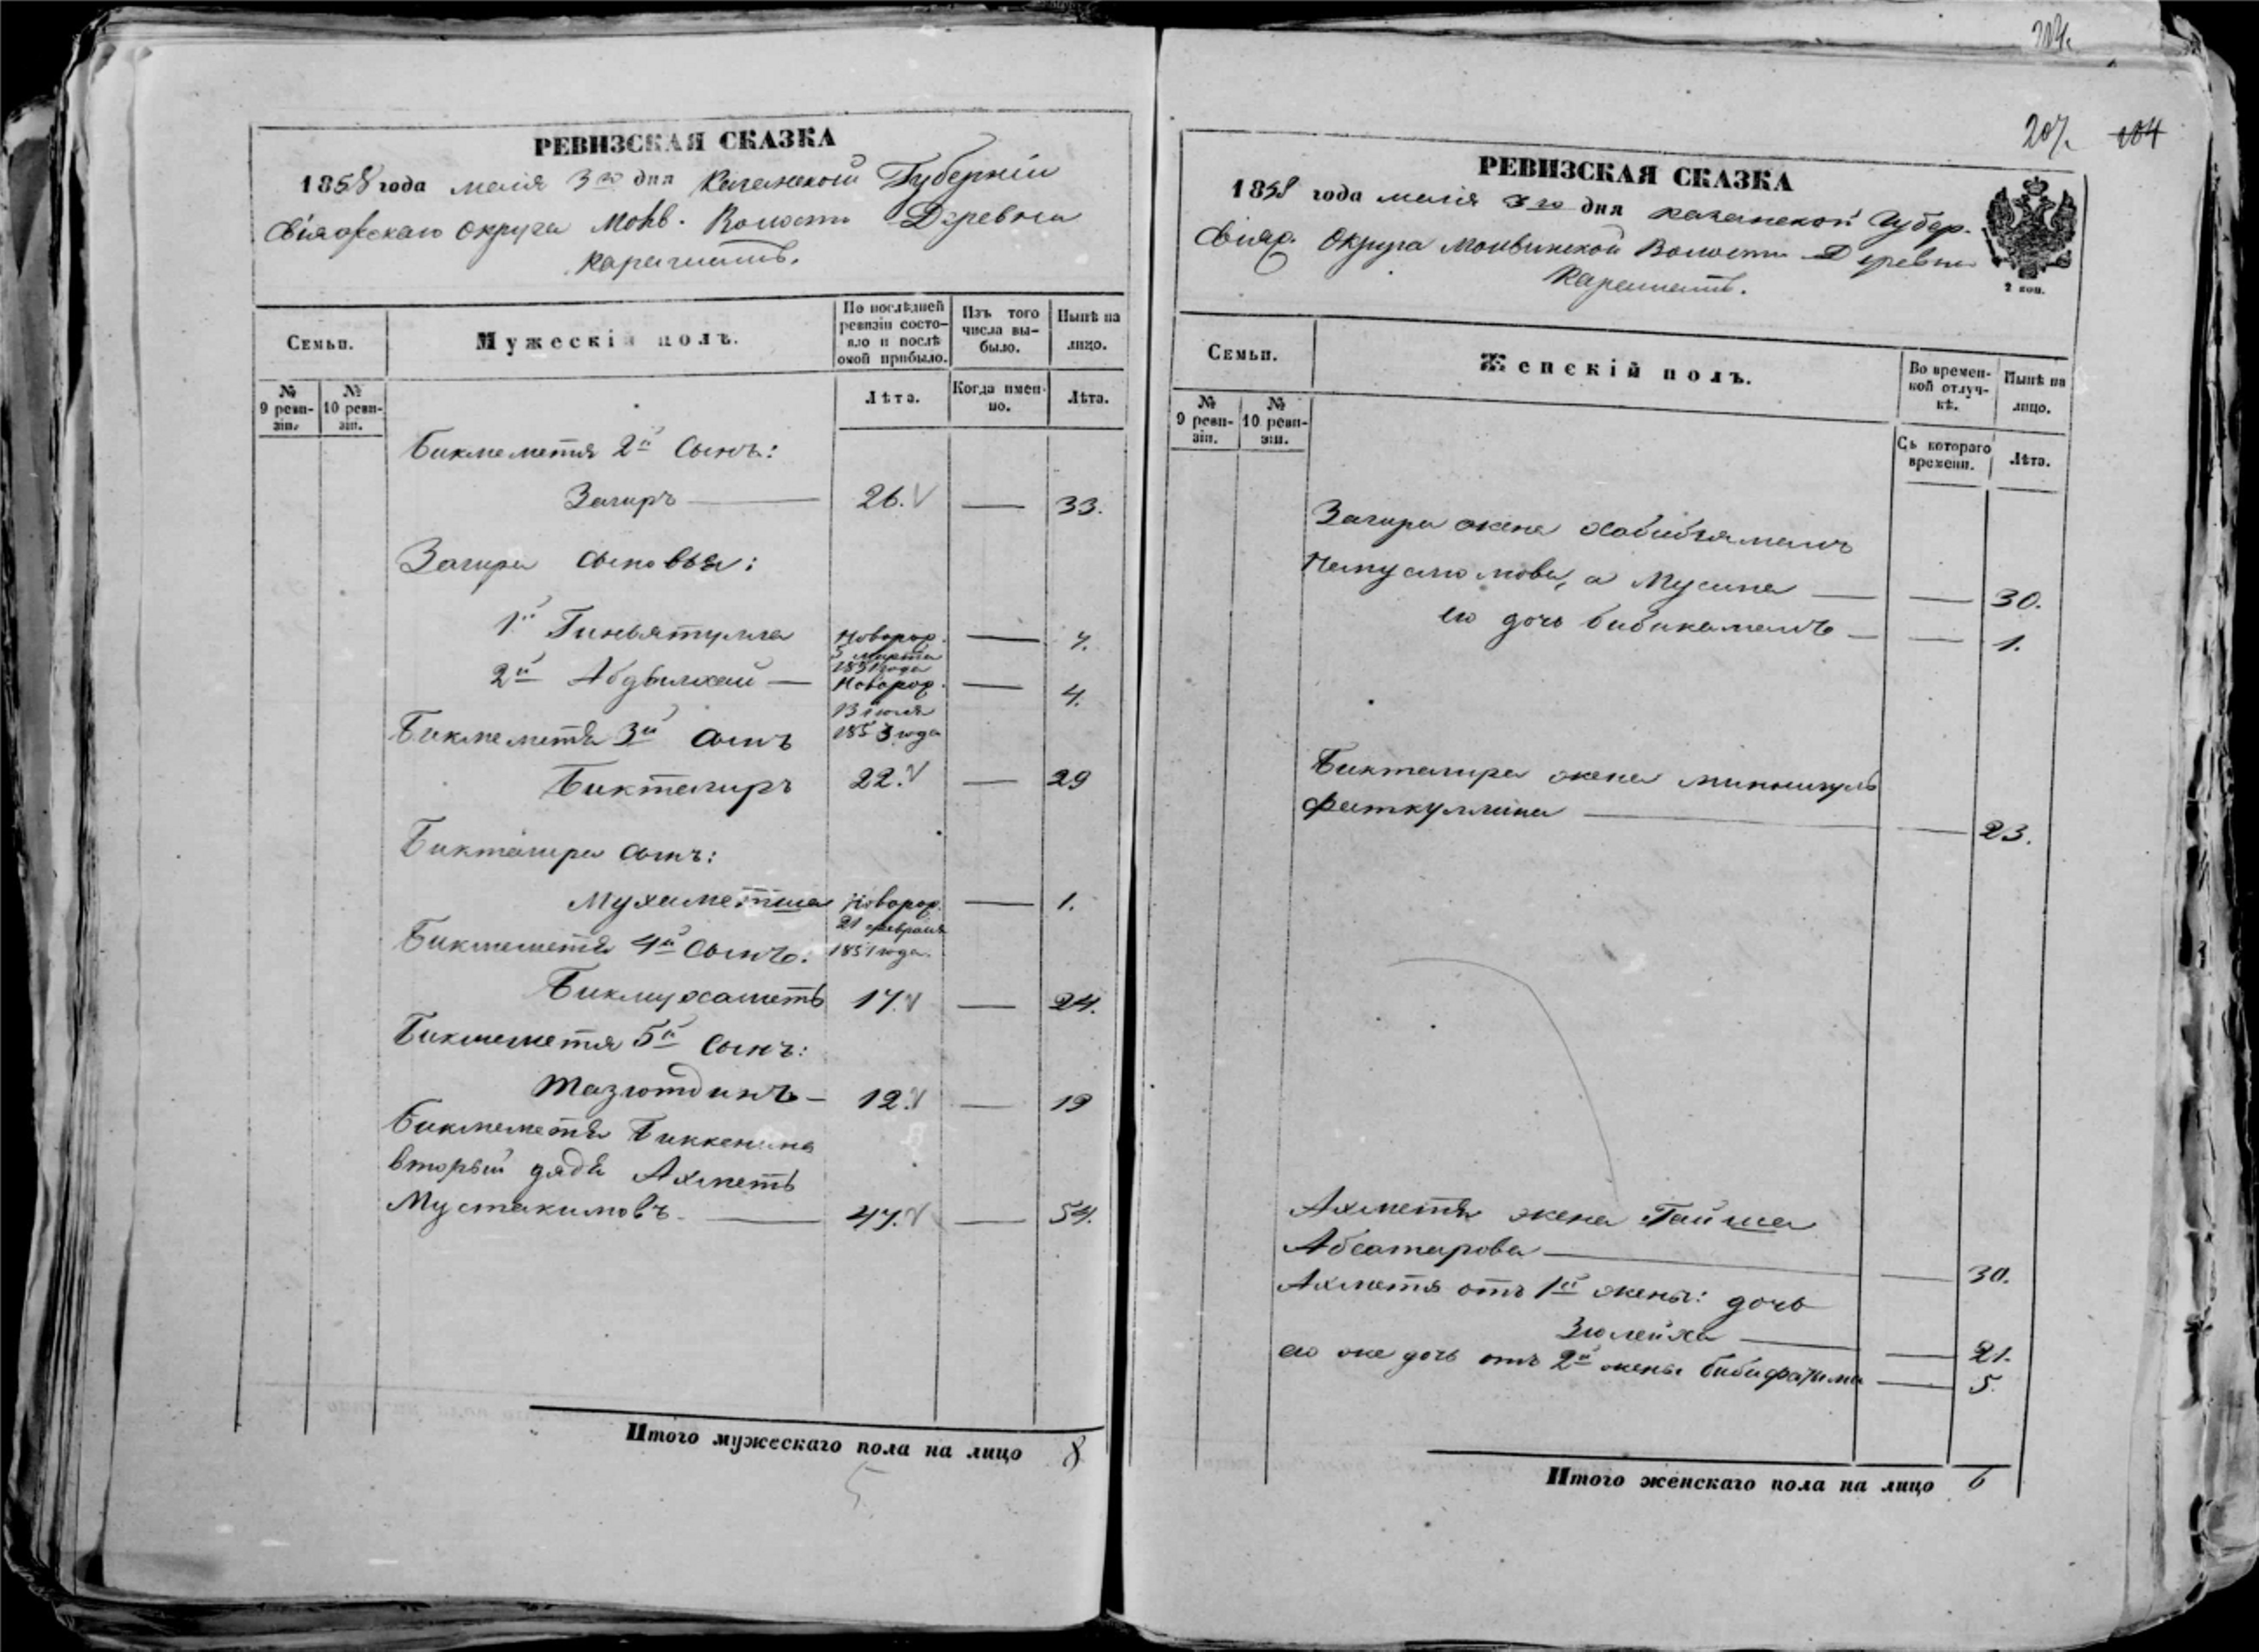 РЕВИЗСКАЯ СКАЗКА
1858 года маія 3го дня Казанской Губерніи
Свіяжскаго Округа Мокв. Волости Деревни
Карашамъ.
Семьи.
Мужескій полъ.
По послѣдней ревизіи состояло и послѣ оной прибыло.
Изъ того числа выбыло.
Нынѣ на лицо.
№ 9 ревизіи.
№ 10 ревизіи.
Лѣта.
Когда именно.
Лѣта.
Бикмеметя 2й Сынъ:
Загиръ 26. — 33.
Загира сыновья:
1й Гиньятулла Новорож. 5 марта 1851 года — 7.
2й Абдылхай — Новорож. 13 іюля 1853 года — 4.
Бикмеметя 3й сынъ
Биктагиръ 22. — 29
Биктагира сынъ:
Мухаметша Новорож. 21 февраля 1857 года. — 1.
Бикмеметя 4й Сынъ:
Бикмухаметъ 17. — 24.
Бикмеметя 5й Сынъ:
Тазютдинъ — 12. — 19
Бикмеметя Биккенина
вторый дядя Ахметь
Мустакимовъ. 47. — 54.
Итого мужескаго пола на лицо 8
207. 104
РЕВИЗСКАЯ СКАЗКА
1858 года маія 3го дня Казанской Губер.
Свіяж. Округа Моквинской Волости Деревни
Карашамъ.
2 коп.
Семьи.
Женскій полъ.
Во временной отлучкѣ.
Нынѣ на лицо.
№ 9 ревизіи.
№ 10 ревизіи.
Съ котораго времени.
Лѣта.
Загира жена Хабибзямалъ
а Мусина — — 30.
его дочь Бибикамалъ — — 1.
Биктагира жена Минлигуль
Фаткуллина — — 23.
Ахметя жена Гайша
Абсатарова — — 30.
Ахметя отъ 1й жены: дочь
Зюлейха — — 21.
его же дочь отъ 2й жены Бибифатыма — 5.
Итого женскаго пола на лицо 6